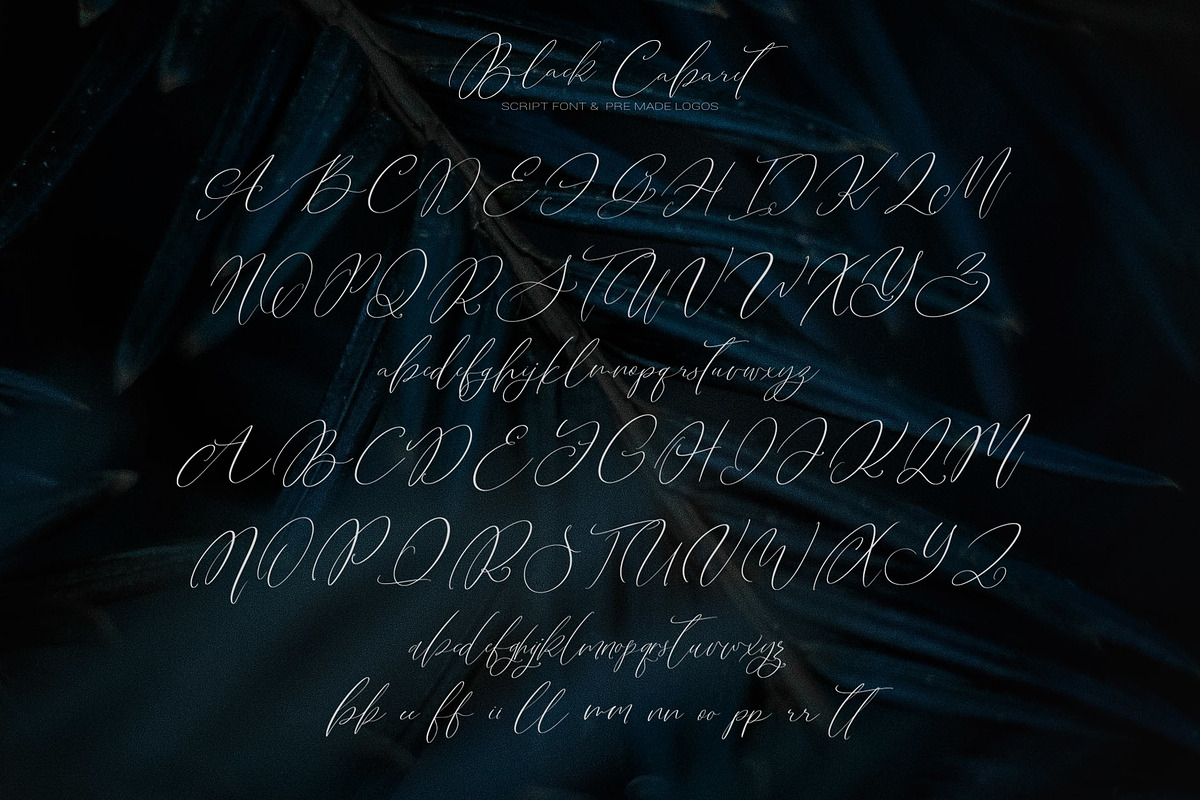 Black Cabaret
SCRIPT FONT & PRE MADE LOGOS
A B C D E F G H I J K L M
N O P Q R S T U V W X Y Z
a b c d e f g h i j k l m n o p q r s t u v w x y z
A B C D E F G H I J K L M
N O P Q R S T U V W X Y Z
a b c d e f g h i j k l m n o p q r s t u v w x y z
bb ee ff ii ll mm nn oo pp rr tt